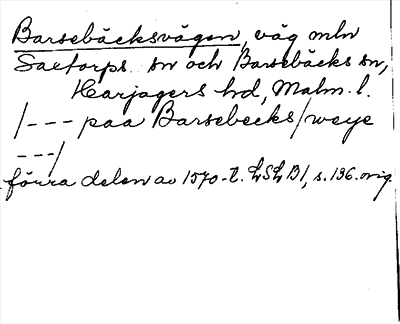 Barsebäcksvägen, väg mln
Saxtorps sn och Barsebäcks sn,
Harjagers hd, Malm. l.
/--- paa Barsebecks/weye
---/
förra delen av 1570-t. LSLB1, s. 136. orig.